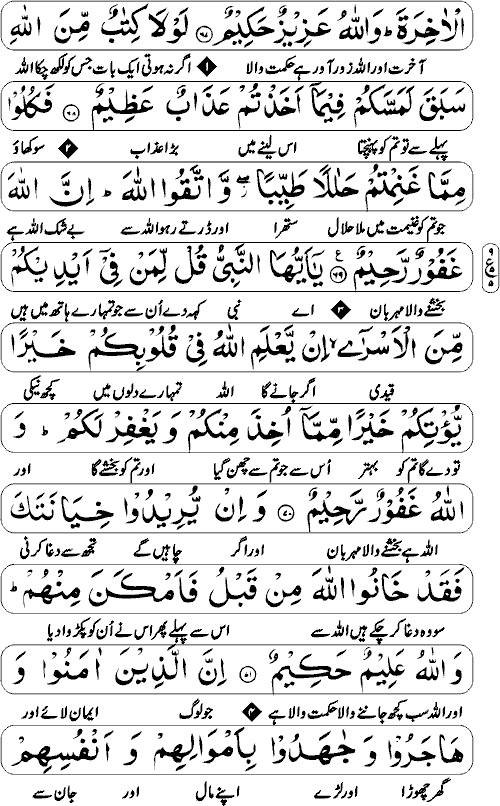 الْاٰخِرَةَ ؕ وَاللّٰهُ عَزِيْزٌ حَكِيْمٌ ﴿۶۷﴾ لَوْلَا كِتٰبٌ مِّنَ اللّٰهِ
آخرت اور اللہ زور آور ہے حکمت والا ۱ اگر نہ ہوتی ایک بات جس کو لکھ چکا اللہ
سَبَقَ لَمَسَّكُمْ فِيْمَاۤ اَخَذْتُمْ عَذَابٌ عَظِيْمٌ ﴿۶۸﴾ فَكُلُوْا
پہلے سے تو تم کو پہنچتا اس لینے میں بڑا عذاب ۲ سو کھاؤ
مِمَّا غَنِمْتُمْ حَلٰلًا طَيِّبًا ۖ وَّ اتَّقُوا اللّٰهَ ؕ اِنَّ اللّٰهَ
جو تم کو غنیمت میں ملا حلال ستھرا اور ڈرتے رہو اللہ سے بے شک اللہ ہے
غَفُوْرٌ رَّحِيْمٌ ﴿۶۹﴾ ع يٰۤاَيُّهَا النَّبِىُّ قُلْ لِّمَنْ فِىْۤ اَيْدِيْكُمْ
بخشنے والا مہربان ۳ اے نبی کہہ دے اُن سے جو تمہارے ہاتھ میں ہیں
مِّنَ الْاَسْرٰٓى ۙ اِنْ يَّعْلَمِ اللّٰهُ فِىْ قُلُوْبِكُمْ خَيْرًا
قیدی اگر جانے گا اللہ تمہارے دلوں میں کچھ نیکی
يُّؤْتِكُمْ خَيْرًا مِّمَّاۤ اُخِذَ مِنْكُمْ وَ يَغْفِرْ لَكُمْ ؕ وَ
تو دے گا تم کو بہتر اُس سے جو تم سے چھن گیا اور تم کو بخشے گا اور
اللّٰهُ غَفُوْرٌ رَّحِيْمٌ ﴿۷۰﴾ وَ اِنْ يُّرِيْدُوْا خِيَانَتَكَ
اللہ ہے بخشنے والا مہربان اور اگر چاہیں گے تجھ سے دغا کرنی
فَقَدْ خَانُوا اللّٰهَ مِنْ قَبْلُ فَاَمْكَنَ مِنْهُمْ ؕ
سو وہ دغا کر چکے ہیں اللہ سے اس سے پہلے پھر اس نے اُن کو پکڑوا دیا
وَاللّٰهُ عَلِيْمٌ حَكِيْمٌ ﴿۷۱﴾ اِنَّ الَّذِيْنَ اٰمَنُوْا وَ
اور اللہ سب کچھ جاننے والا حکمت والا ہے ۴ جو لوگ ایمان لائے اور
هَاجَرُوْا وَ جٰهَدُوْا بِاَمْوَالِهِمْ وَ اَنْفُسِهِمْ
گھر چھوڑا اور لڑے اپنے مال اور جان سے